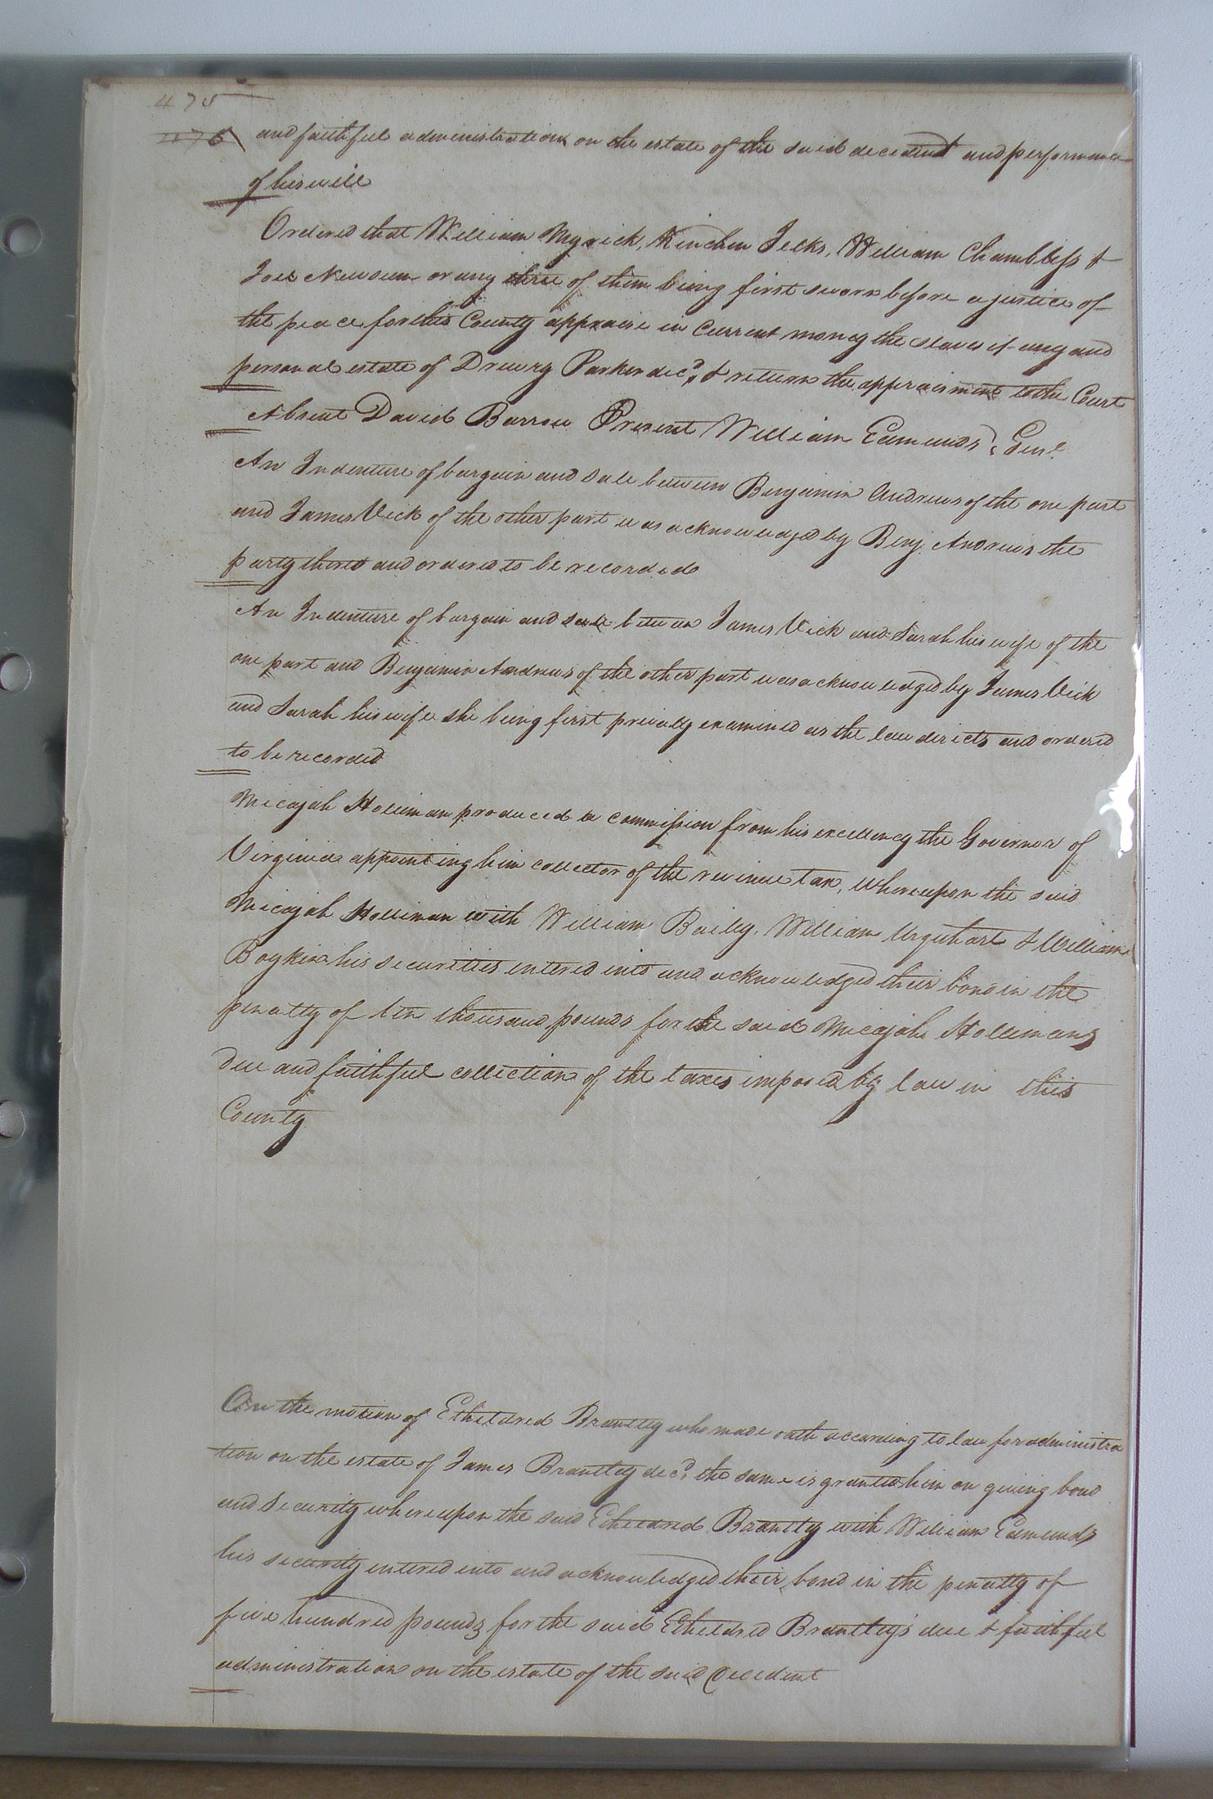 475
476 and faithful administration on the estate of the said decedent and performance
of his will
Ordered that William Myrick, Kinchen Jelks, William Chambless &
Joel Newsum or any three of them being first sworn before a justice of
the peace for this County appraise in Current money the slaves if any and
personal estate of Drewry Parker decd, & return the appraisment to the Court
Absent David Barrow Present William Edmunds, Genl.
An Indenture of bargain and sale between Benjamin Andrews of the one part
and James Vick of the other part was acknowledged by Benj Andrews the
party thereto and ordered to be recorded
An Indenture of bargain and sale between James Vick and Sarah his wife of the
one part and Benjamin Andrews of the other part was acknowledged by James Vick
and Sarah his wife she being first privately examined as the law directs and ordered
to be recorded
Micajah Holliman produced a commission from his excellency the Governor of
Virginia appointing him collector of the revinue tax, Whereupon the said
Micajah Holliman with William Bailey, William Urquhart & William
Boykin his securities entered into and acknowledged their bond in the
penalty of ten thousand pounds for the said Micajah Hollimans
due and faithful collection of the taxes imposed by law in this
County
On the motion of Etheldred Brantley who made oath according to law for administra
tion on the estate of James Brantley decd. the same is granted him on giving bond
and security whereupon the said Etheldred Brantley with William Edmunds
his security entered into and acknowledged their bond in the penalty of
five hundred pounds for the said Etheldred Brantley's due & faithful
administration on the estate of the said decedent